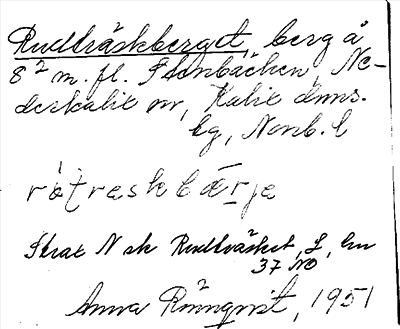 Rudträskberget, berg å
8² m. fl. Stenbäcken, Ne-
derkalix sn, Kalix skns.
lg, Norrb. l
Strax N ch Rudträsket, L, km
37 NO
Anna Rönnqvist, 1951